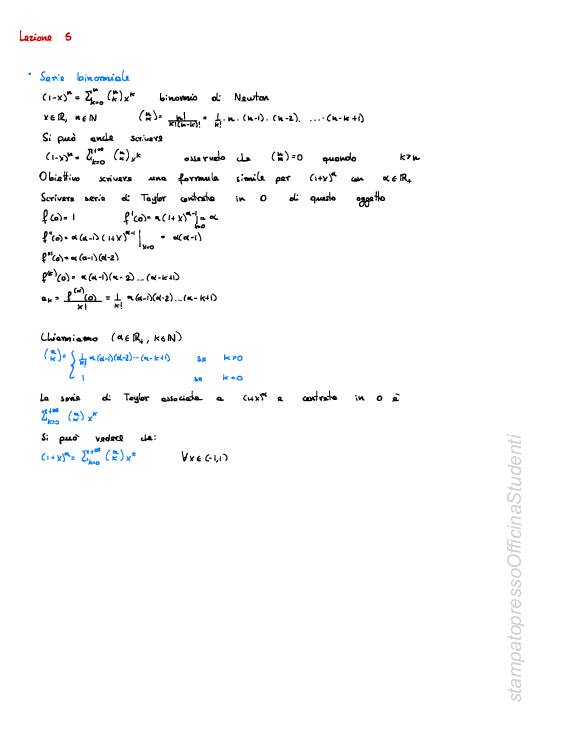 Lezione 5
• Serie binomiale
(1-x)ⁿ = Σₖ₌₀ⁿ (n k) xᵏ binomio di Newton
x∈ℝ, n∈ℕ (n k) = n!/k!(n-k)! = 1/k! · n · (n-1) · (n-2) · ... · (n-k+1)
Si può anche scrivere
(1-x)ⁿ = Σₖ₌₀⁺∞ (n k) xᵏ osservato che (n k) = 0 quando k>n
Obiettivo scrivere una formula simile per (1+x)^α con α∈ℝ₊
Scrivere serie di Taylor centrata in 0 di questo oggetto
f(0) = 1 f'(0) = α(1+x)^α-1 |ₓ₌₀ = α
f''(0) = α(α-1)(1+x)^α-1 |ₓ₌₀ = α(α-1)
f'''(0) = α(α-1)(α-2)
f⁽ᵏ⁾(0) = α(α-1)(α-2)...(α-k+1)
aₖ = f⁽ᵏ⁾(0)/k! = 1/k! α(α-1)(α-2)...(α-k+1)
Chiamiamo (α∈ℝ₊, k∈ℕ)
(α k) = { 1/k! α(α-1)(α-2)...(α-k+1) se k>0
1 se k=0
La serie di Taylor associata a (1+x)^α e centrata in 0 è
Σₖ₌₀⁺∞ (α k) xᵏ
Si può vedere che:
(1+x)^α = Σₖ₌₀⁺∞ (α k) xᵏ ∀x∈(-1,1)
stampatopressoOfficinaStudenti